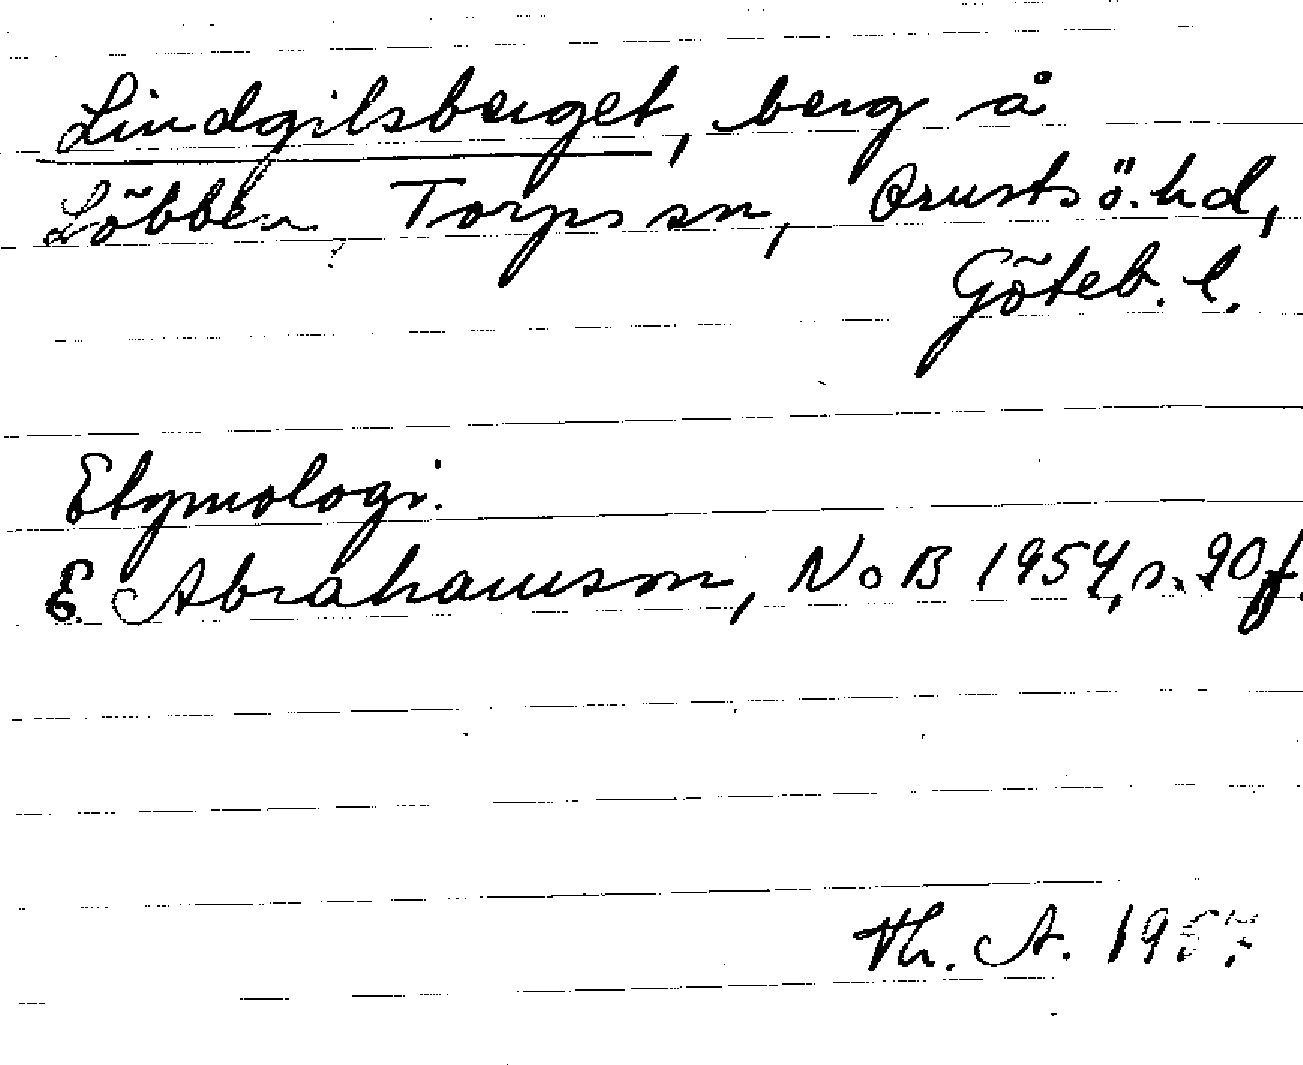 Lindgilsberget, berg å
Löbben, Torps sn, Orusts ö. hd,
Göteb. l.
Etymologi.
E. Abrahamson, NoB 1954, s. 90 f.
Th. A. 1957